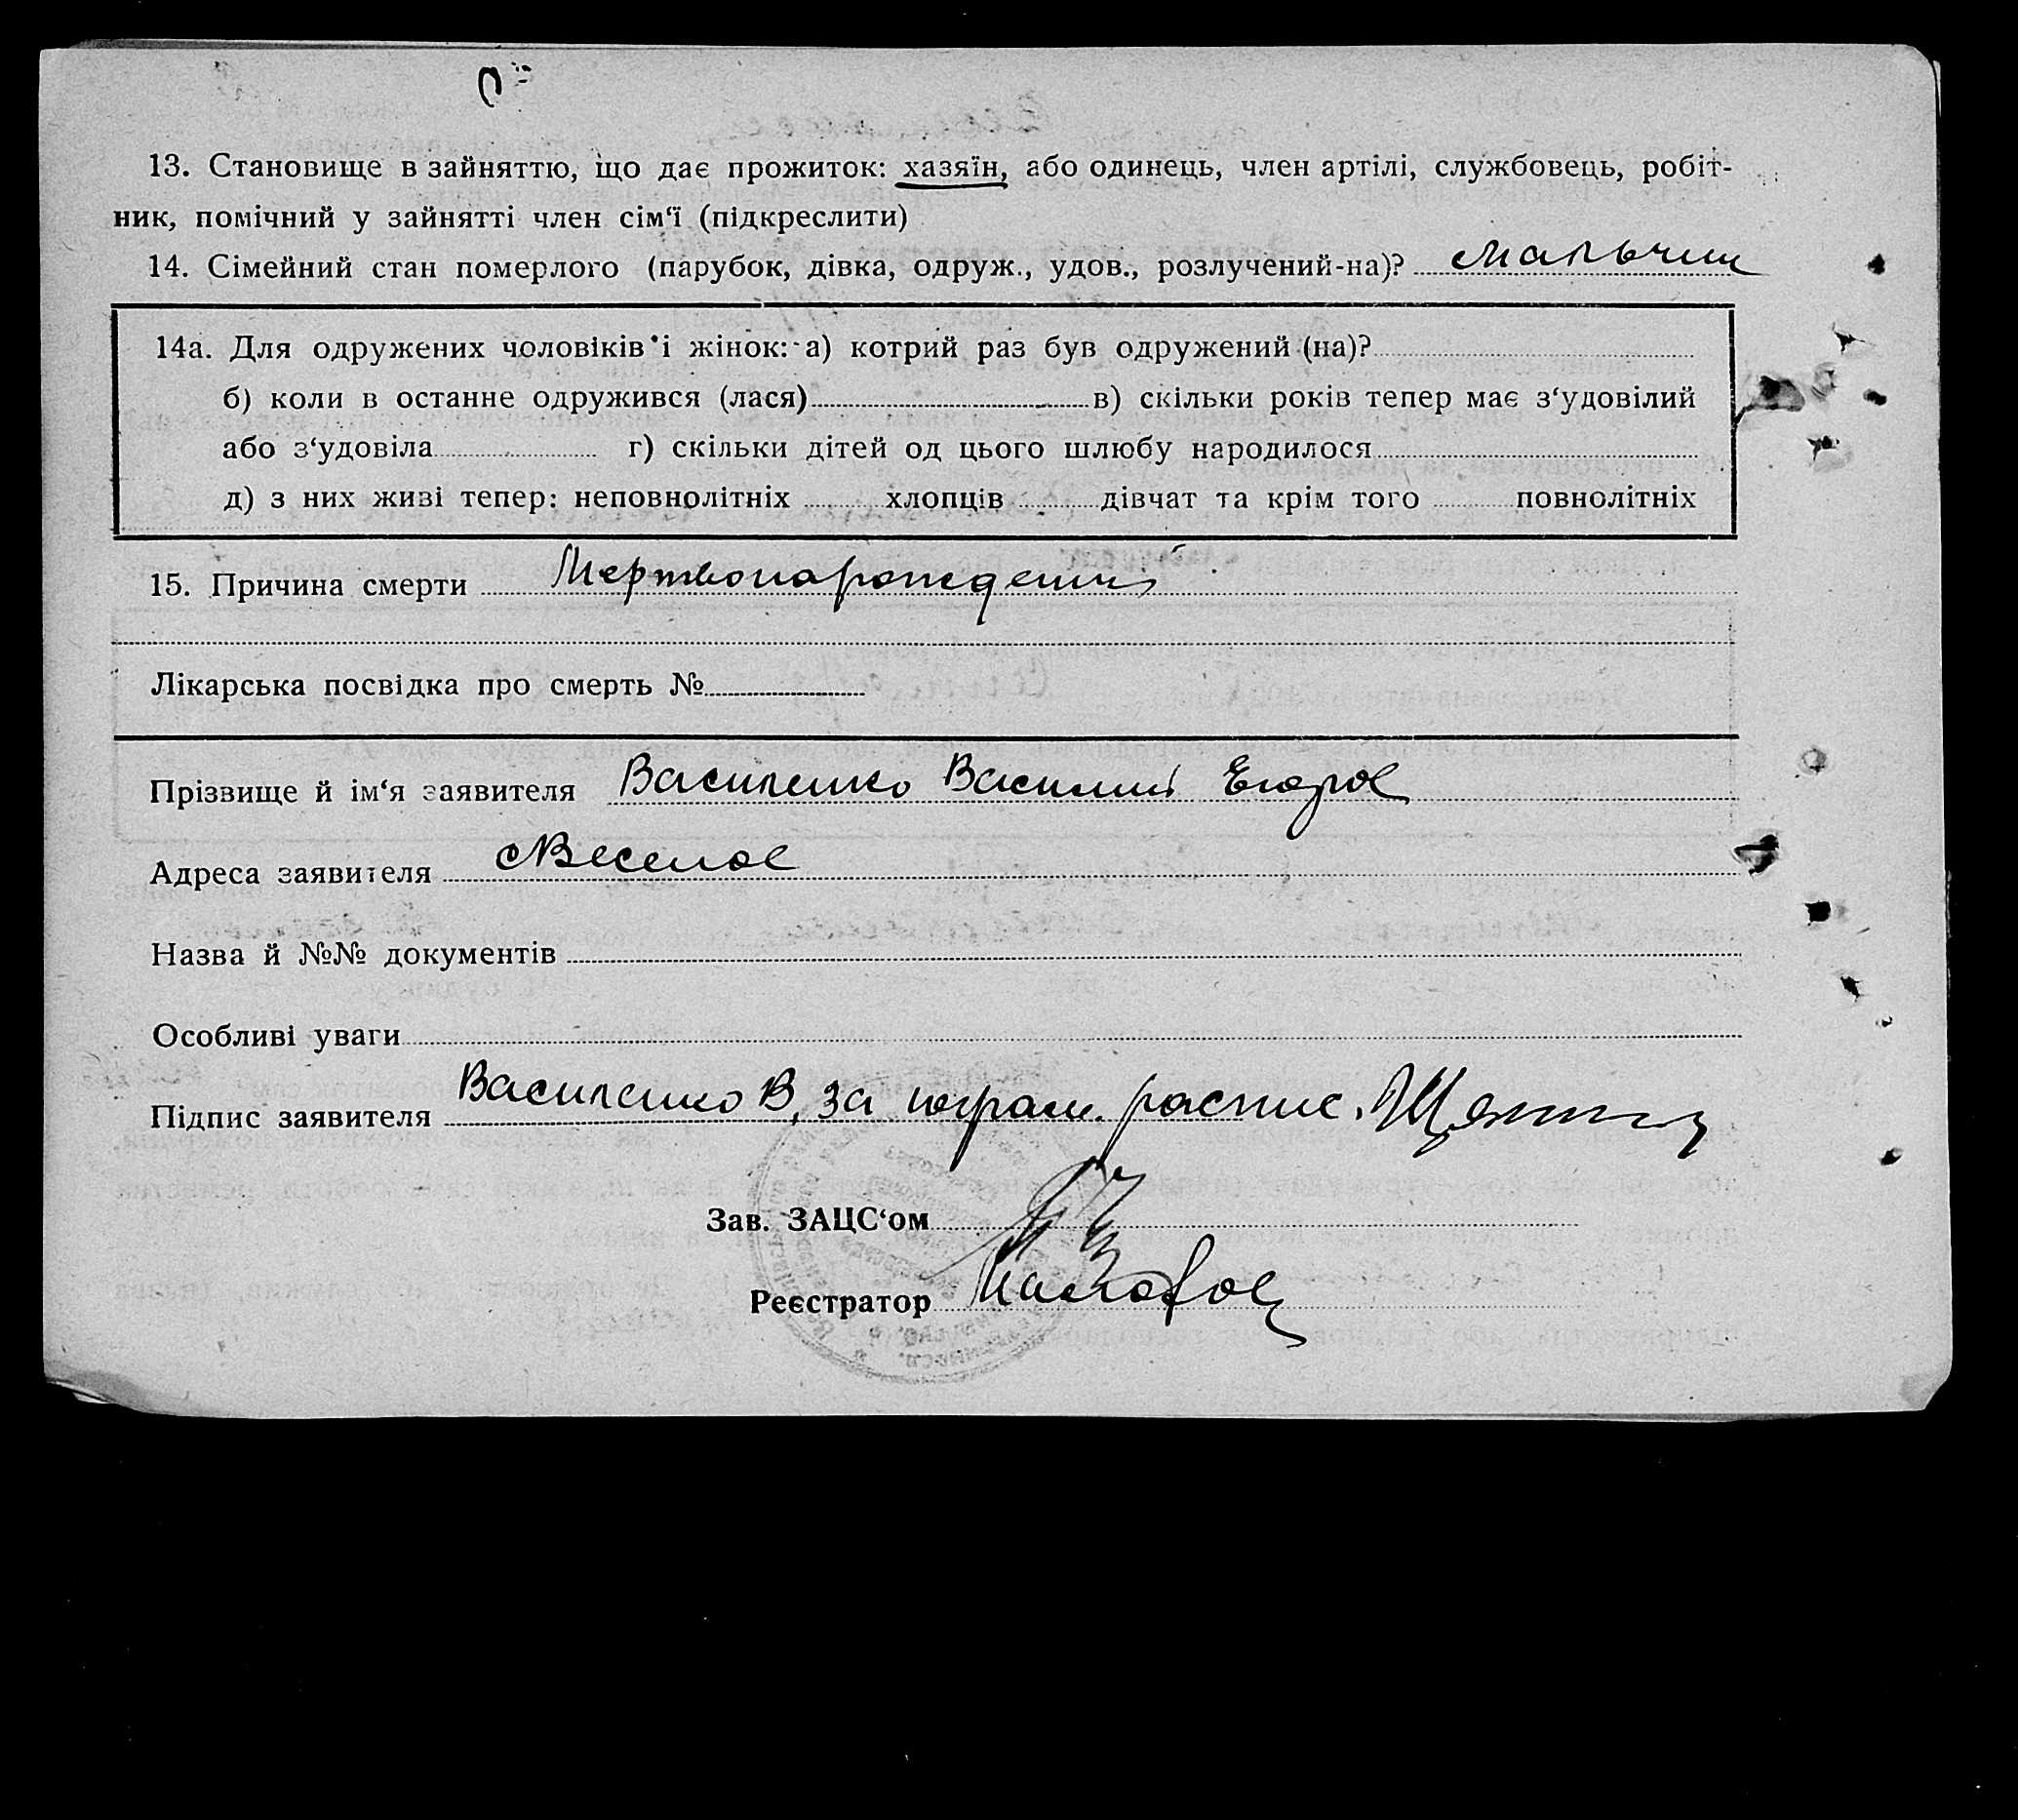 13. Становище в зайняттю, що дає прожиток: хазяїн, або одинець, член артілі, службовець, робіт-
ник, помічний у зайнятті член сім‘ї (підкреслити)
14. Сімейний стан померлого (парубок, дівка, одруж., удов., розлучений-на)? мальчик
14а. Для одружених чоловіків і жінок: а) котрий раз був одружений (на)?
б) коли в останне одружився (лася) в) скільки років тепер має з‘удовілий
або з‘удовіла г) скільки дітей од цього шлюбу народилося
д) з них живі тепер: неповнолітніх хлопців дівчат та крім того повнолітніх
15. Причина смерти Мертворождений
Лікарська посвідка про смерть №
Прізвище й ім‘я заявителя Василенко Василий Егоров
Адреса заявителя с Веселое
Назва й №№ документів
Особливі уваги
Підпис заявителя Василенко В, за неграм. распис.
Зав. ЗАЦС‘ом
Реєстратор